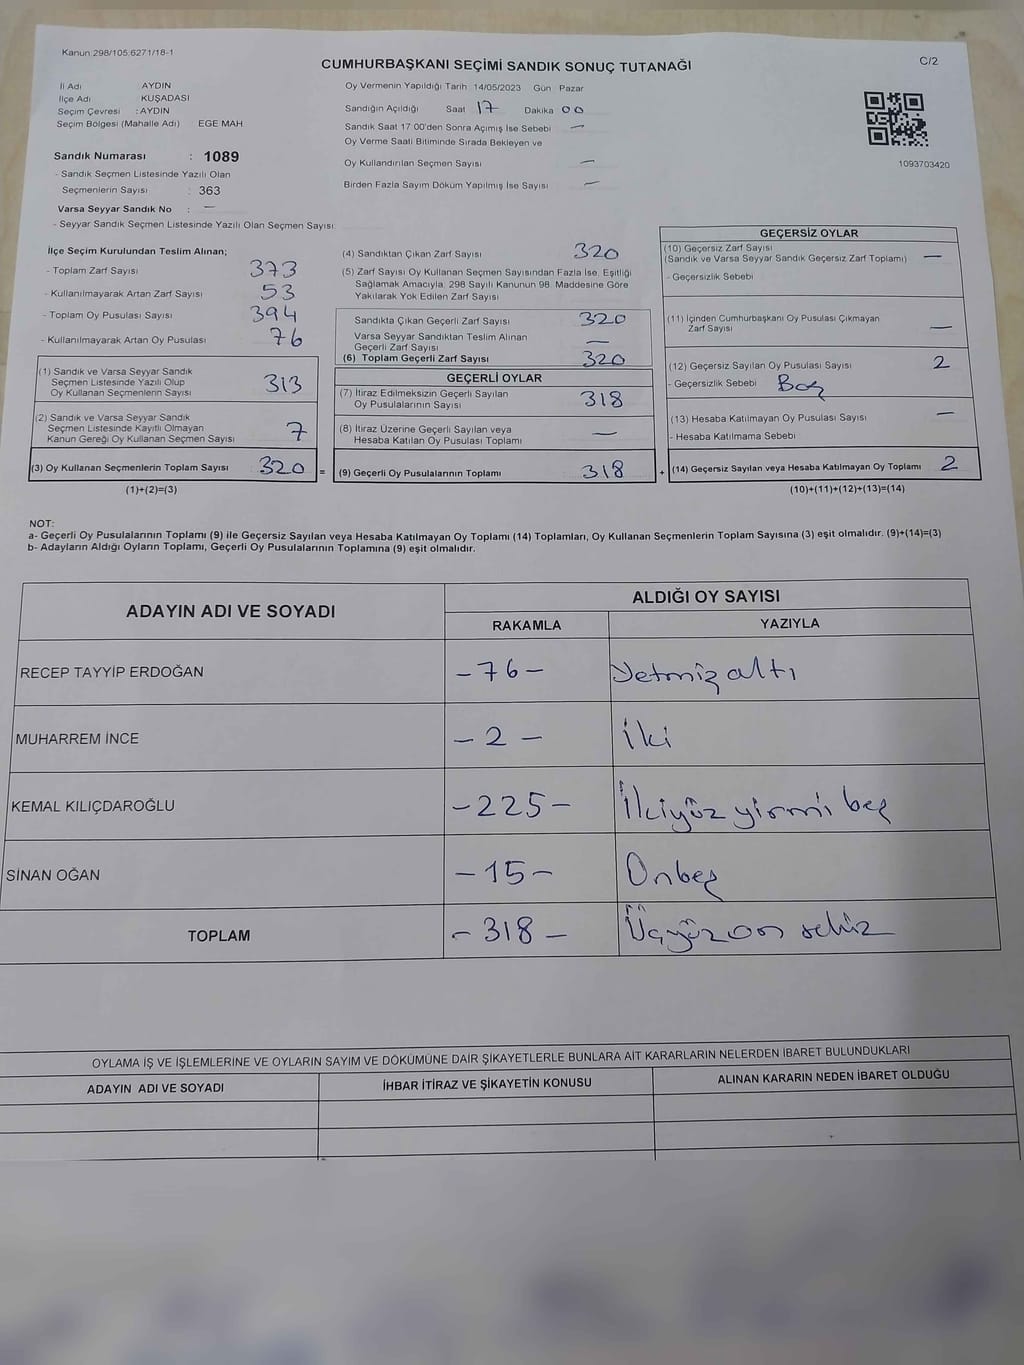 Kanun:298/105.6271/18-1
CUMHURBAŞKANI SEÇİMİ SANDIK SONUÇ TUTANAĞI
C/2
İl Adı AYDIN
İlçe Adı KUŞADASI
Seçim Çevresi : AYDIN
Seçim Bölgesi (Mahalle Adı) EGE MAH
Sandık Numarası : 1089
- Sandık Seçmen Listesinde Yazılı Olan
Seçmenlerin Sayısı : 363
Varsa Seyyar Sandık No : —
- Seyyar Sandık Seçmen Listesinde Yazılı Olan Seçmen Sayısı
Oy Vermenin Yapıldığı Tarih 14/05/2023 Gün Pazar
Sandığın Açıldığı Saat 17 Dakika 00
Sandık Saat 17:00'den Sonra Açımış İse Sebebi —
Oy Verme Saati Bitiminde Sırada Bekleyen ve
Oy Kullandırılan Seçmen Sayısı —
Birden Fazla Sayım Döküm Yapılmış İse Sayısı —
1093703420
İlçe Seçim Kurulundan Teslim Alınan;
- Toplam Zarf Sayısı 373
- Kullanılmayarak Artan Zarf Sayısı 53
- Toplam Oy Pusulası Sayısı 394
- Kullanılmayarak Artan Oy Pusulası 76
(1) Sandık ve Varsa Seyyar Sandık
Seçmen Listesinde Yazılı Olup
Oy Kullanan Seçmenlerin Sayısı 313
(2) Sandık ve Varsa Seyyar Sandık
Seçmen Listesinde Kayıtlı Olmayan
Kanun Gereği Oy Kullanan Seçmen Sayısı 7
(3) Oy Kullanan Seçmenlerin Toplam Sayısı 320 =
(1)+(2)=(3)
(4) Sandıktan Çıkan Zarf Sayısı 320
(5) Zarf Sayısı Oy Kullanan Seçmen Sayısından Fazla İse, Eşitliği
Sağlamak Amacıyla, 298 Sayılı Kanunun 98. Maddesine Göre
Yakılarak Yok Edilen Zarf Sayısı
Sandıkta Çıkan Geçerli Zarf Sayısı 320
Varsa Seyyar Sandıktan Teslim Alınan
Geçerli Zarf Sayısı —
(6) Toplam Geçerli Zarf Sayısı 320
GEÇERLİ OYLAR
(7) İtiraz Edilmeksizin Geçerli Sayılan
Oy Pusulalarının Sayısı 318
(8) İtiraz Üzerine Geçerli Sayılan veya
Hesaba Katılan Oy Pusulası Toplamı —
(9) Geçerli Oy Pusulalarının Toplamı 318 +
GEÇERSİZ OYLAR
(10) Geçersiz Zarf Sayısı
(Sandık ve Varsa Seyyar Sandık Geçersiz Zarf Toplamı) —
- Geçersizlik Sebebi
(11) İçinden Cumhurbaşkanı Oy Pusulası Çıkmayan
Zarf Sayısı —
(12) Geçersiz Sayılan Oy Pusulası Sayısı 2
- Geçersizlik Sebebi Boş
(13) Hesaba Katılmayan Oy Pusulası Sayısı —
- Hesaba Katılmama Sebebi
(14) Geçersiz Sayılan veya Hesaba Katılmayan Oy Toplamı 2
(10)+(11)+(12)+(13)=(14)
NOT:
a- Geçerli Oy Pusulalarının Toplamı (9) ile Geçersiz Sayılan veya Hesaba Katılmayan Oy Toplamı (14) Toplamları, Oy Kullanan Seçmenlerin Toplam Sayısına (3) eşit olmalıdır. (9)+(14)=(3)
b- Adayların Aldığı Oyların Toplamı, Geçerli Oy Pusulalarının Toplamına (9) eşit olmalıdır.
ADAYIN ADI VE SOYADI
ALDIĞI OY SAYISI
RAKAMLA YAZIYLA
RECEP TAYYİP ERDOĞAN -76- Yetmiş altı
MUHARREM İNCE -2- İki
KEMAL KILIÇDAROĞLU -225- İkiyüz yirmi beş
SİNAN OĞAN -15- Onbeş
TOPLAM -318- Üçyüz on sekiz
OYLAMA İŞ VE İŞLEMLERİNE VE OYLARIN SAYIM VE DÖKÜMÜNE DAİR ŞİKAYETLERLE BUNLARA AİT KARARLARIN NELERDEN İBARET BULUNDUKLARI
ADAYIN ADI VE SOYADI İHBAR İTİRAZ VE ŞİKAYETİN KONUSU ALINAN KARARIN NEDEN İBARET OLDUĞU